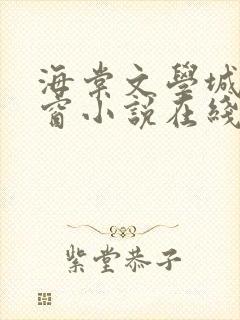 海棠文學城
窗小説在綫
紫堂恭子